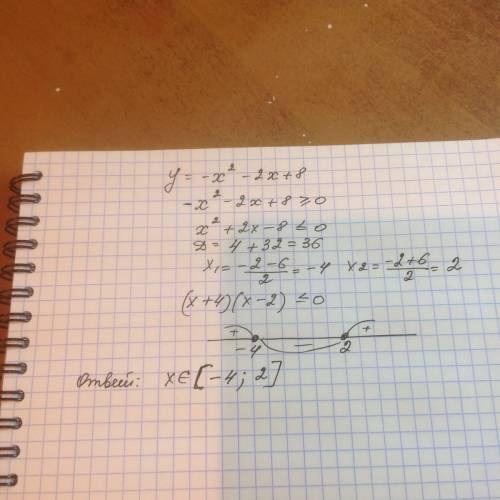 y = -x² - 2x + 8
-x² - 2x + 8 ≥ 0
x² + 2x - 8 ≤ 0
D = 4 + 32 = 36
x₁ = (-2-6)/2 = -4   x2 = (-2+6)/2 = 2
(x+4)(x-2) ≤ 0
+ − +
-4 2
Ответ: x ∈ [-4; 2]